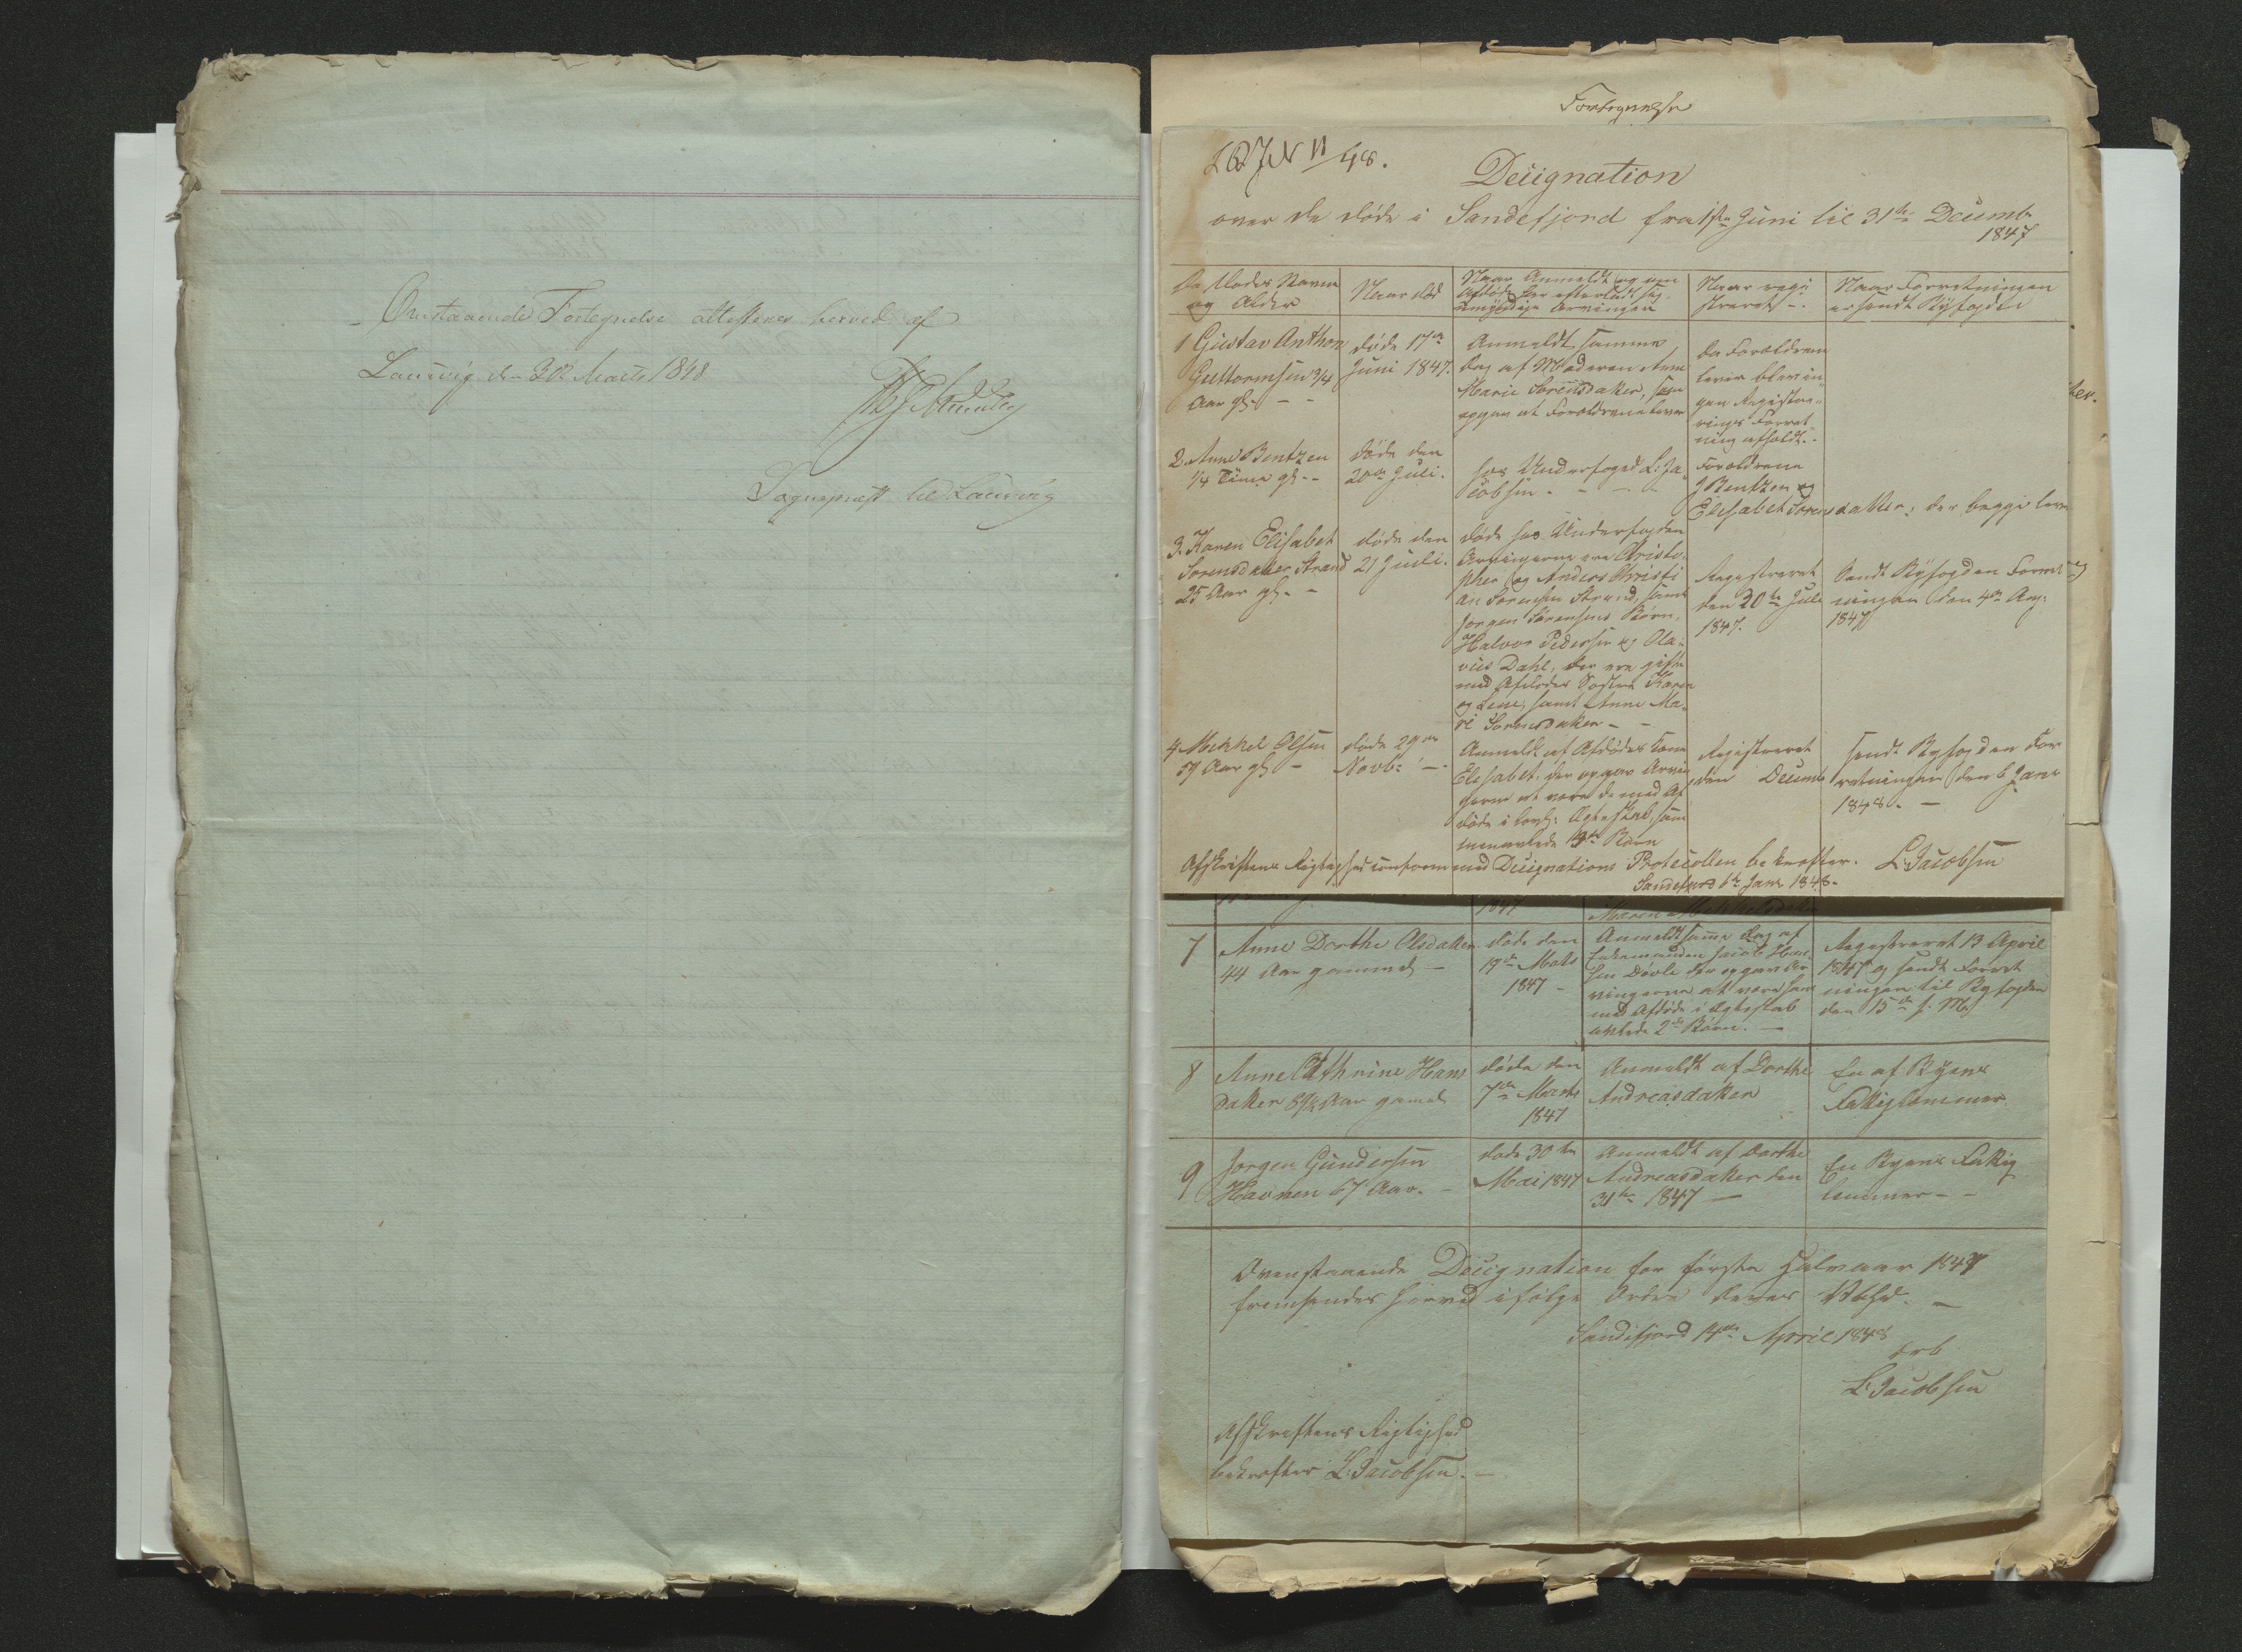 Omstaaende Fortegnelse attesteres herved af
Laurvig den 30 Marts 1848
Sognepræst til Laurvig
Fortegnelse
N 11/48.
Designation
over de døde i Sandefjord fra 1ste Juni til 31te Decembr
1847
De Dødes Navne
og Alder
Naar død
Naar Anmeldt og om
Afdøde har efterladt sig
umyndige Arvinger
Naar regi
streret -
Naar Forretningen
er sendt Byfogden
1 Gustav Anthon
Guttormsen 3/4
Aar gl. - -
døde 17de
Juni 1847.
Anmeldt samme
Dag af Moderen Anne
Marie Sørensdatter, som
opgav at Forældrene lever
Da Forældrene
lever blev in-
gen Registre-
rings Forret
ning afholdt. -
2. Anne Bentzen
1/4 Time gl. - -
døde den
20de Juli.
hos Underfoged L: Ja
cobsen. - - -
Forældrene
J Bentzen og
Elisabet Sørensdatter, der begge leve
3. Karen Elisabet
Sørensdatter Strand
25 Aar gl. -
døde den
21 Juli.
døde hos Underfogden
Arvingerne ere Christo-
pher og Anders Christi
an Sørensen Strand, samt
Jørgen Sørensens Børn,
Halvor Pedersen og Ola-
vus Dahl, der ere gifte
med Afdødes Søstre Karen
og Lene, samt Anne Ma-
rie Sørensdatter - -
Registreret
den 20te Juli
1847.
Sendt Byfogden Forret
ningen den 4de Aug:
1847
4. Mekkel Olsen
57 Aar gl. -
døde 29de
Novbr: -
Anmeldt af Afdødes Kone
Elisabet, der opgav Arvin
gerne at være de med Af
døde i lovl: Ægteskab sam
menavlede Børn
Registreret
den Decembr
sendt Byfogden For
retningen den 6 Janr
1848. -
Afskriftens Rigtighed conform med Designations Protocollen bekræfter. L: Jacobsen
Sandefjord 6te Janr 1848.
1847
Maren Mekkelsdatter
7 Anne Dorthe Olsdatter
44 Aar gammel -
døde den
19de Mats
1847 -
Anmeldt samme Dag af
Enkemanden Jacob Han-
sen Døvle der opgav Ar
vingerne at være ham
med Afdøde i Ægteskab
avlede 2de Børn. -
Registreret 13 April
1847 og sendt Forret
ningen til Byfogden
den 15de s. M.
8 Anne Cathrine Hans
datter 84 Aar gamel
døde den
7de Marts
1847
Anmeldt af Dorthe
Andreasdatter
En af Byens
Fattiglemmer
9 Jørgen Gundersen
Havnen 67 Aar. -
døde 30te
Mai 1847
Anmeldt af Dorthe
Andreasdatter den
31te 1847 -
En Byens Fattig
lemmer - -
Ovenstaaende Designation for første Halvaar 1847
fremsendes herved ifølge Ordre Deres -
Sandefjord 14de April 1848
L: Jacobsen
Afskriftens Rigtighed
bekræfter L: Jacobsen. -